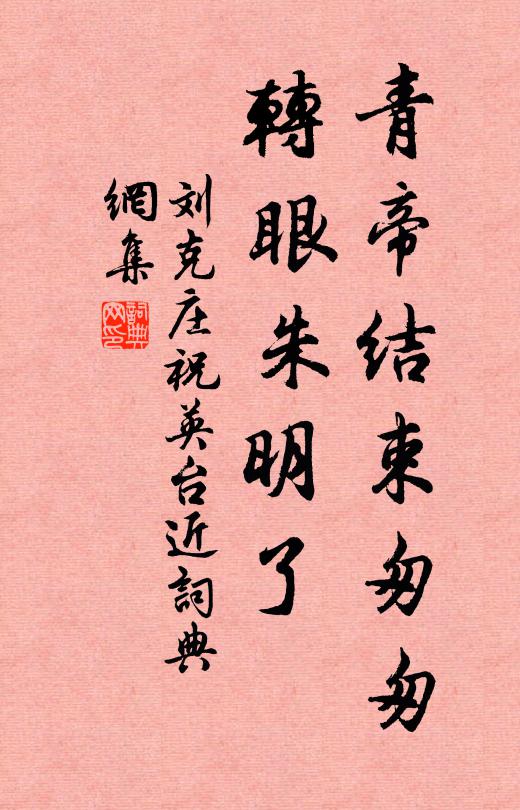 青帝結束匆匆
轉眼朱明了
刘克庄祝英台近詞典
網集
詞典
网印